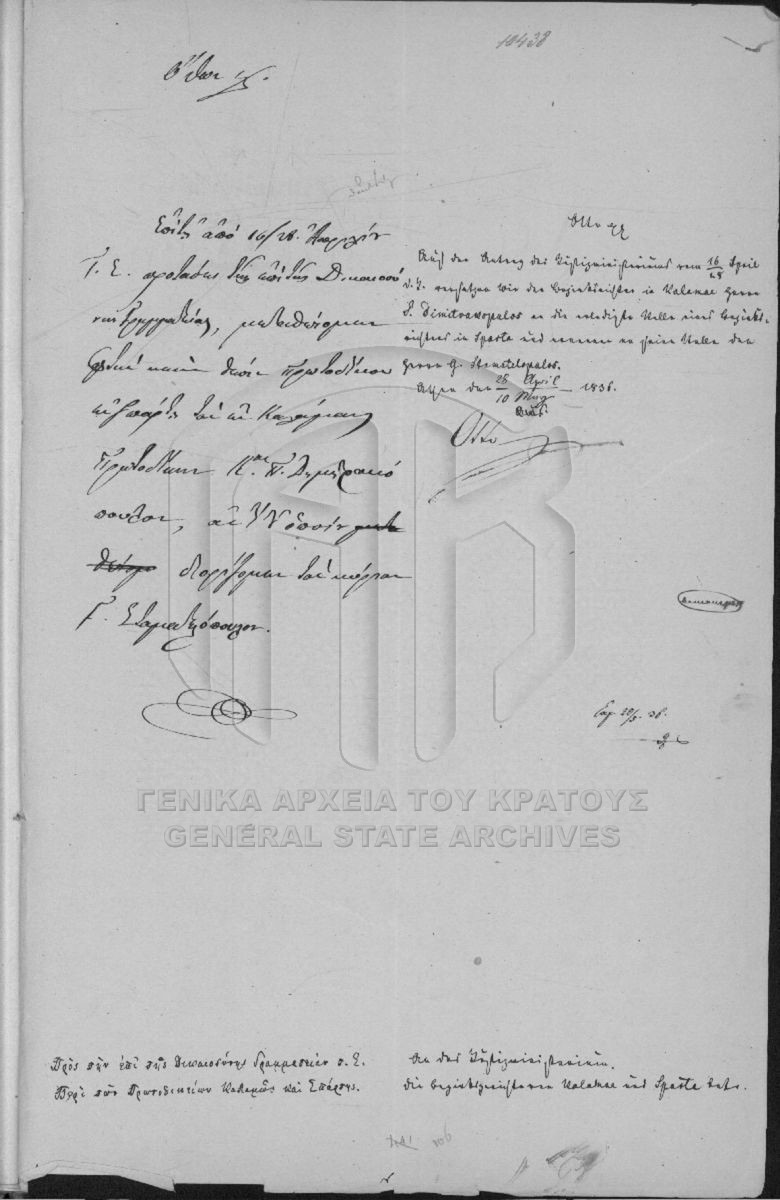 10438
Ὄθων
Ἐπὶ τῇ ἀπὸ 16/28. Ἀπριλίου
τ. ἔ. προτάσει τῆς ἐπὶ τῆς Δικαιοσύ
νης Γραμματείας, μεταθέτομεν
πρωτοδίκου
Σπάρτης τὸν ἐν Καλάμαις
Πρωτοδίκην Κ. Π. Δημητρακό
πουλον,
διορίζομεν τὸν κύριον
Γ. Σταματελόπουλον.
Otto
Auf den Antrag des Justizministeriums vom 16/28 April
d. J. versetzen wir den Bezirksrichter in Kalamae Herrn
P. Dimitracopulos an die erledigte Stelle eines Bezirks-
richters in Sparta und ernennen an seine Stelle den
Herrn G. Stamatelopulos.
Athen den 28/10 April/May 1836.
Otto
20/5. 36.
ΓΕΝΙΚΑ ΑΡΧΕΙΑ ΤΟΥ ΚΡΑΤΟΥΣ
GENERAL STATE ARCHIVES
Πρὸς τὴν ἐπὶ τῆς Δικαιοσύνης Γραμματείαν τ. Ἐ.
Περὶ τῶν Πρωτοδικείων Καλαμῶν καὶ Σπάρτης.
An das Justizministerium.
Die Bezirksgerichte von Kalamae und Sparta betr.